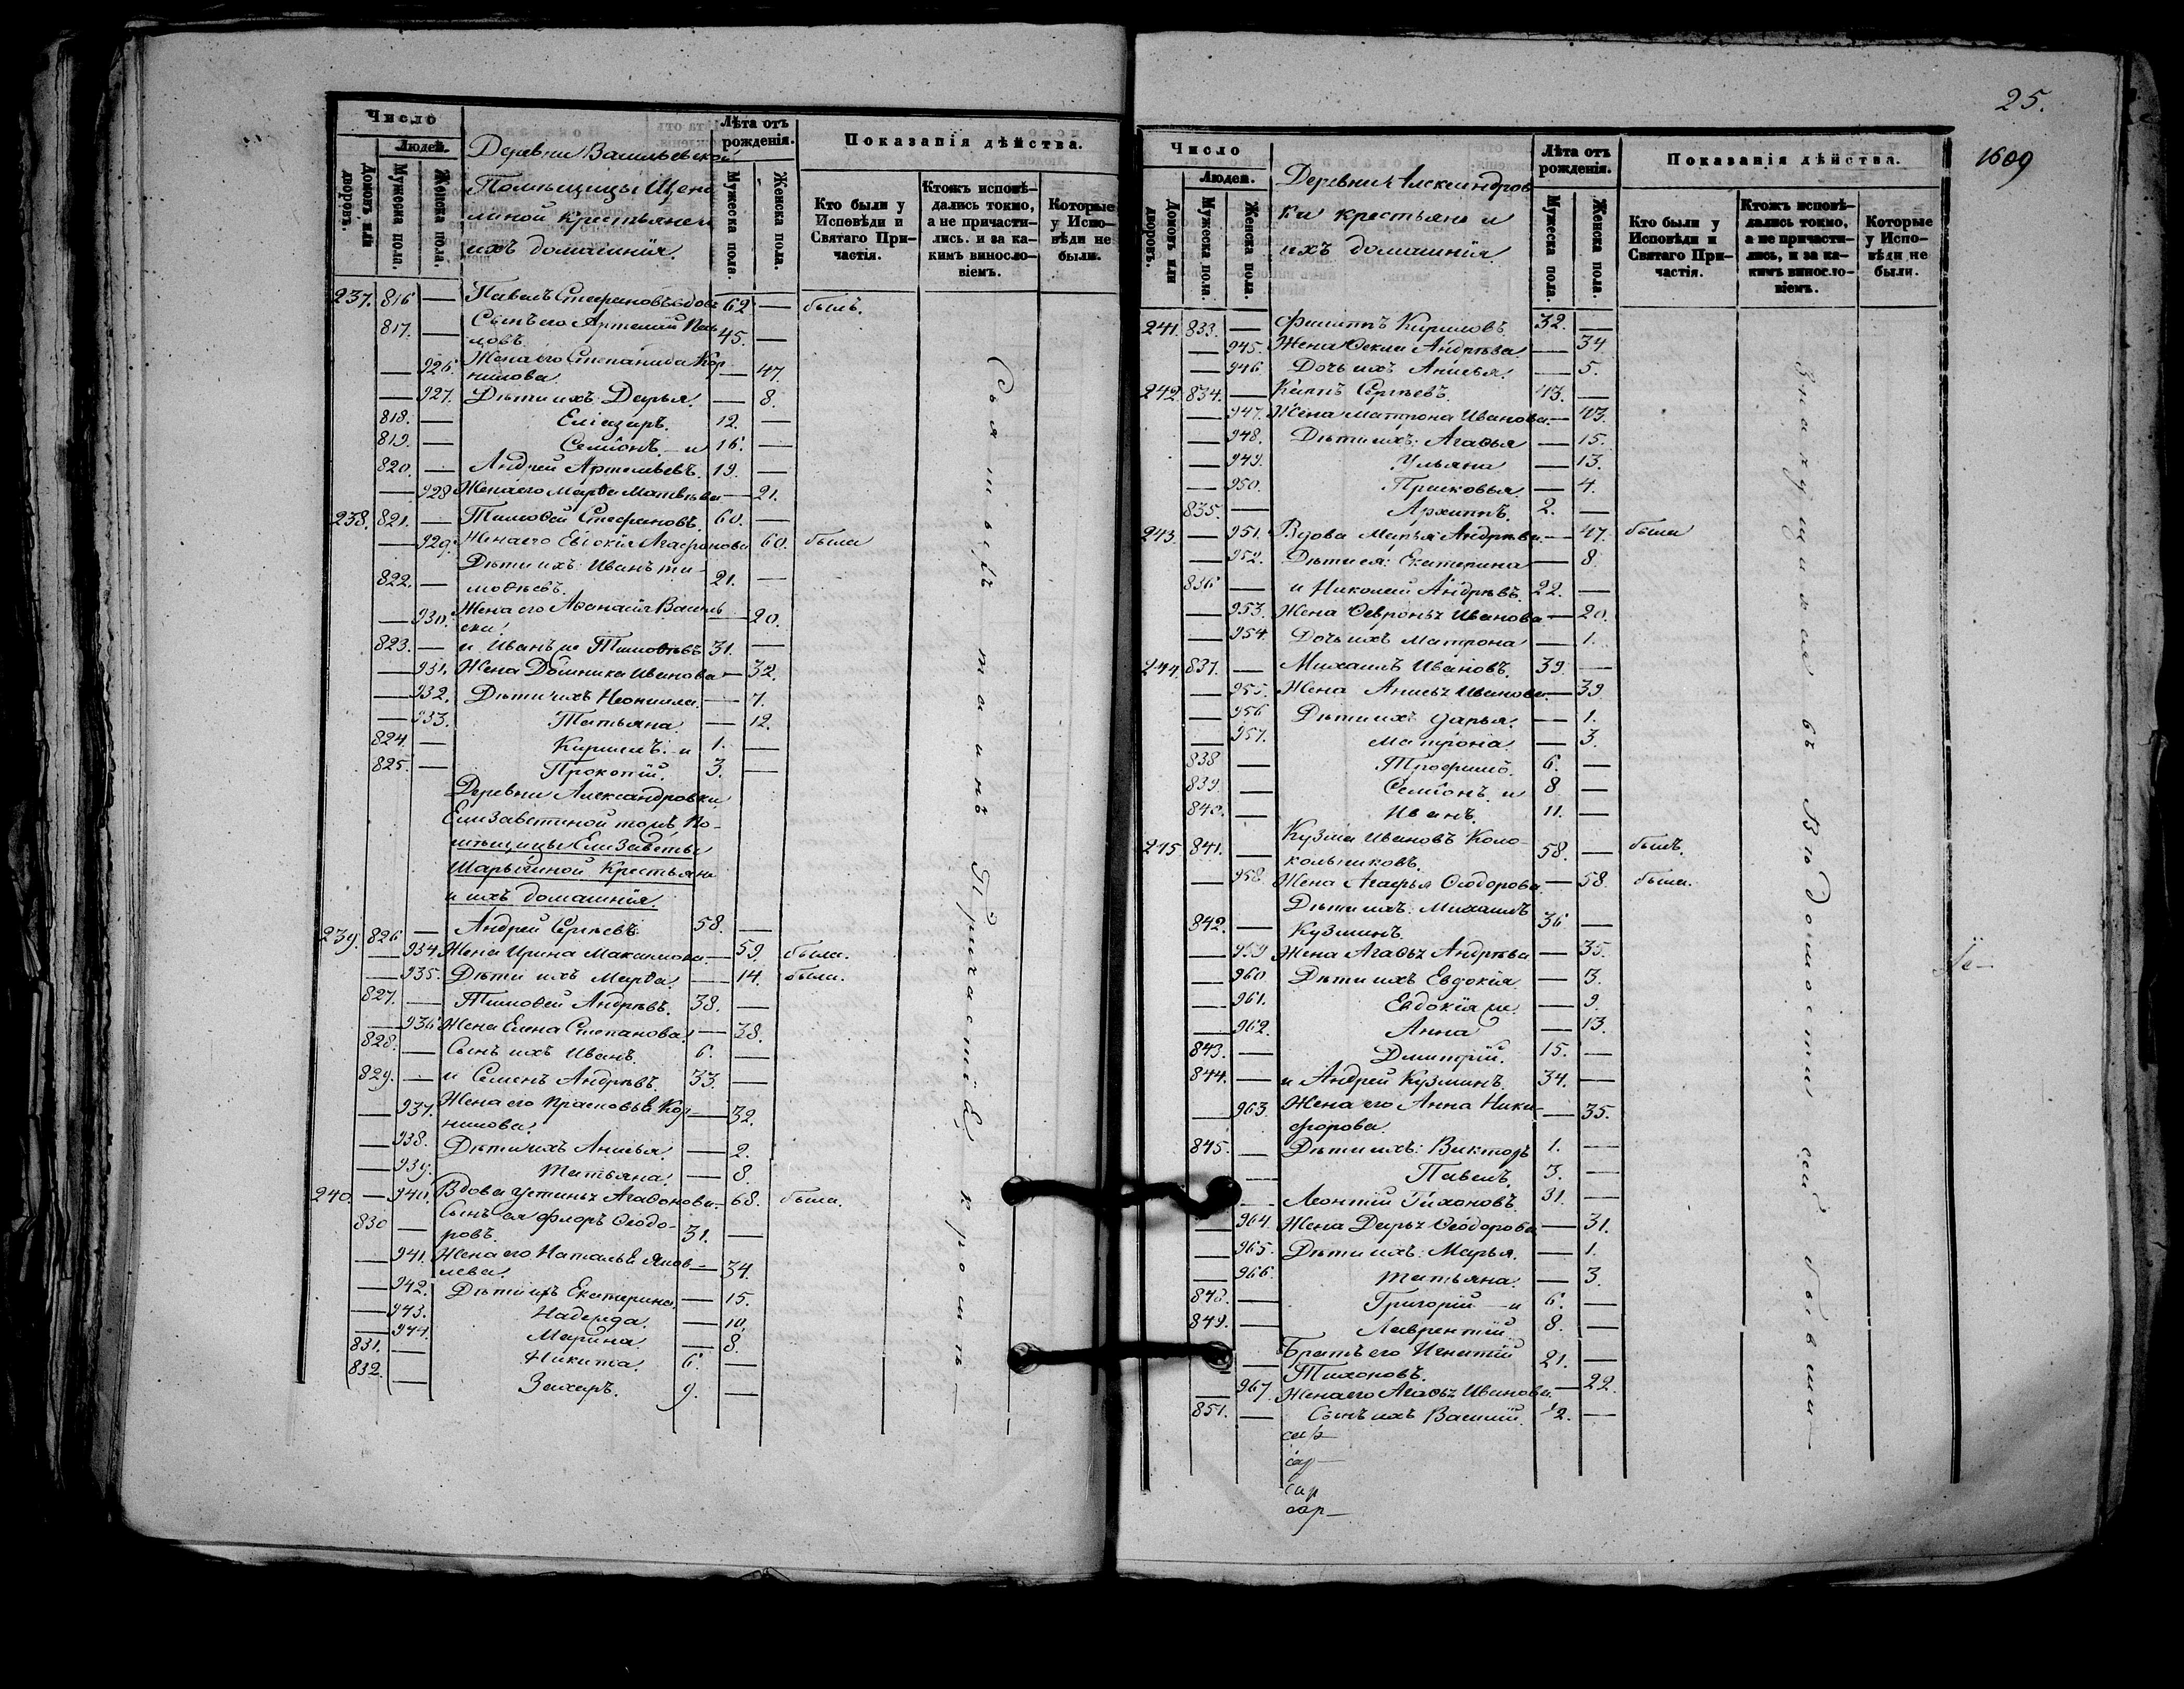 Число
Людей.
Домовъ или дворовъ.
Мужеска пола.
Женска пола.
Деревни Васильевской
Помѣщицы Щепо
тиной крестьяне и
ихъ домашнія.
Лѣта отъ рожденія.
Мужеска пола.
Женска пола.
Показанія дѣйства.
Кто были у Исповѣди и Святаго Причастія.
Ктожъ исповѣдались токмо, а не причастились. и за какимъ винословіемъ.
Которые у Исповѣди не были.
237. 816 — Павелъ Стефановъ вдовъ 62 — былъ.
817. — Сынъ его Артемий Пав
ловъ. 45. —
— 926. Жена его Степанида Кор
нилова. — 47.
— 927. Дѣти ихъ: Дарья. — 8.
818. — Еліазаръ. 12. —
819. — Семіонъ. и 16. —
820. — Андрей Артемьевъ. 19. —
— 928 Жена его Марѳа Матвѣева — 21.
238. 821. — Тимоѳей Стефановъ. 60. —
— 929. Жена его Евдокія Агафонова 60. была
Дѣти ихъ: Иванъ Ти-
822. — моѳѣевъ. 21. —
— 930. Жена его Аѳанасія Василь
ева. — 20.
823. — и Иванъ же Тимоѳѣевъ 31. —
— 931. Жена Домника Иванова — 32.
— 932. Дѣти ихъ Неонилла. — 7.
— 933. Татьяна. — 12.
824. — Кириллъ. и 1. —
825. — Прокопій. 3. —
Деревни Александровки
Елизаветиной томъ По-
мѣщицы Елизаветы
Шарыгиной Крестьяне
и ихъ домашнія.
239. 826 — Андрей Сергѣевъ. 58. —
— 934. Жена Ирина Максимова. — 59. была.
— 935. Дѣти ихъ Марѳа. — 14. была.
827. — Тимоѳей Андрѣевъ. 38. —
— 936 Жена Елена Степанова. — 38.
828. — Сынъ ихъ Иванъ. 6. —
829. — и Семенъ Андрѣевъ. 33. —
— 937. Жена его Прасковья Кор
нилова. — 32.
— 938. Дѣти ихъ Анисья. — 2.
— 939. Татьяна. — 8.
240. — 940. Вдова Устинья Агаѳонова. — 68. была.
Сынъ ея Флоръ Ѳеодо-
830 — ровъ. 31. —
— 941. Жена его Наталья Яков-
лева. — 34.
— 942. Дѣти ихъ Екатерина. — 15.
— 943. Надежда. — 10.
— 944. Марина. — 8.
831. — Никита. 6. —
832. — Захаръ. 9. —
Святыхъ таинъ Причастія, кромѣ
25.
1609
Число
Людей.
Домовъ или дворовъ.
Мужеска пола.
Женска пола.
Деревни Александров
ки крестьяне и
ихъ домашнія.
Лѣта отъ рожденія.
Мужеска пола.
Женска пола.
Показанія дѣйства.
Кто были у Исповѣди и Святаго Причастія.
Ктожъ исповѣдались токмо, а не причастились, и за какимъ винословіемъ.
Которые у Исповѣди не были.
241. 833. — Филиппъ Кириловъ. 32. —
— 945. Жена Ѳекла Андрѣева. — 34.
— 946 Дочь ихъ Анисья. — 5.
242. 834. — Карпъ Сергѣевъ. 43. —
— 947. Жена Матрона Иванова. — 43.
— 948. Дѣти ихъ: Агаѳья — 15.
— 949. Ульяна — 13.
— 950. Прасковья. — 4.
835. — Архиппъ. 2. —
243 — 951. Вдова Марья Андрѣева. — 47. была
— 952. Дѣти ея: Екатерина — 8.
836 — и Николай Андрѣевъ. 22. —
— 953. Жена Ѳевронья Иванова — 20.
— 954. Дочь ихъ Матрона — 1.
244. 837. — Михаилъ Ивановъ. 39. —
— 955. Жена Анисья Иванова. — 39.
— 956 Дѣти ихъ Дарья. — 1.
— 957. Матрона. — 3.
838 — Трофимъ. 6. —
839. — Семіонъ. и 8 —
840. — Иванъ. 11. —
245. 841. — Кузма Ивановъ Коло-
кольниковъ. 58. — былъ.
— 958. Жена Агафья Ѳеодорова — 58. была.
Дѣти ихъ: Михаилъ
842. — Кузминъ. 36 —
— 959 Жена Агаѳья Андрѣева — 35.
— 960 Дѣти ихъ Евдокія. — 3.
— 961. Евдокія же. — 9.
— 962. Анна — 13.
843. — Димитрій. 15. —
844. — и Андрей Кузминъ. 34. —
— 963. Жена его Анна Ники-
форова. — 35.
845. — Дѣти ихъ: Викторъ 1. —
— Павелъ. 3. —
— Леонтій Тихоновъ. 31. —
— 964. Жена Дарья Ѳеодорова — 31.
— 965. Дѣти ихъ: Марья. — 1.
— 966. Татьяна. — 3.
848. — Григорій — и 6. —
849. — Лаврентій. 8. —
Братъ его Игнатій
— Тихоновъ. 21. —
— 967. Жена его Агаѳья Иванова. — 22.
851. — Сынъ ихъ Василій. ½. —
Значущихся въ Вѣдомости сей бывшим